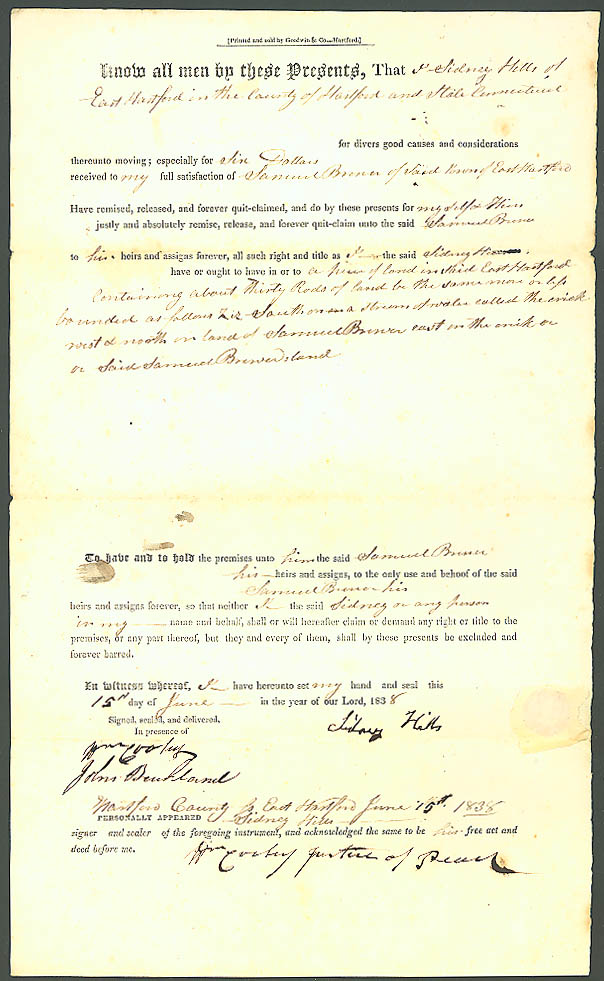 [Printed and sold by Goodwin & Co.—Hartford.]
Know all men by these Presents, That I Sidney Hills of
East Hartford in the County of Hartford and State Connecticut
for divers good causes and considerations
thereunto moving; especially for Six Dollars
received to my full satisfaction of Samuel Brewer of Said Town of East Hartford
Have remised, released, and forever quit-claimed, and do by these presents for myself & Heirs
justly and absolutely remise, release, and forever quit-claim unto the said Samuel Brewer
to his heirs and assigns forever, all such right and title as I the said Sidney
have or ought to have in or to a piece of land in said East Hartford
Containing about thirty Rods of land be the same more or less
bounded as follows Viz South on a stream of water called the crick
west & north on land of Samuel Brewer east on the crick or
or Said Samuel Brewers land
To have and to hold the premises unto him the said Samuel Brewer
his heirs and assigns, to the only use and behoof of the said
Samuel Brewer his
heirs and assigns forever, so that neither I the said Sidney or any person
in my name and behalf, shall or will hereafter claim or demand any right or title to the
premises, or any part thereof, but they and every of them, shall by these presents be excluded and
forever barred.
In witness whereof, I have hereunto set my hand and seal this
15th day of June in the year of our Lord, 1838
Signed, sealed, and delivered,
In presence of
Sidney Hills
Wm Cooley
John Buckland
Hartford County Ss East Hartford June 15th 1838
PERSONALLY APPEARED Sidney Hills
signer and sealer of the foregoing instrument, and acknowledged the same to be his free act and
deed before me.
Wm Cooley Justice of Peace